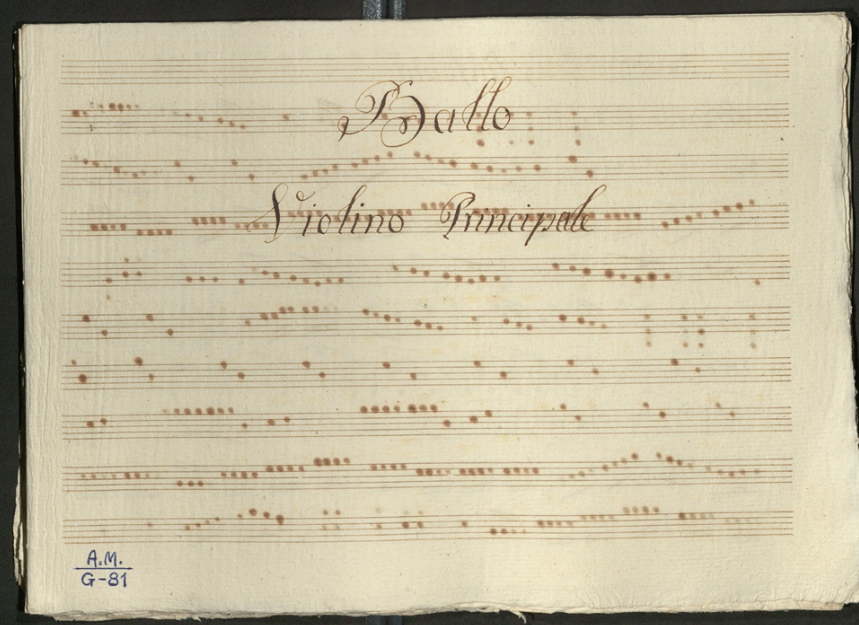 Ballo
Violino Principale
A.M.
G-81